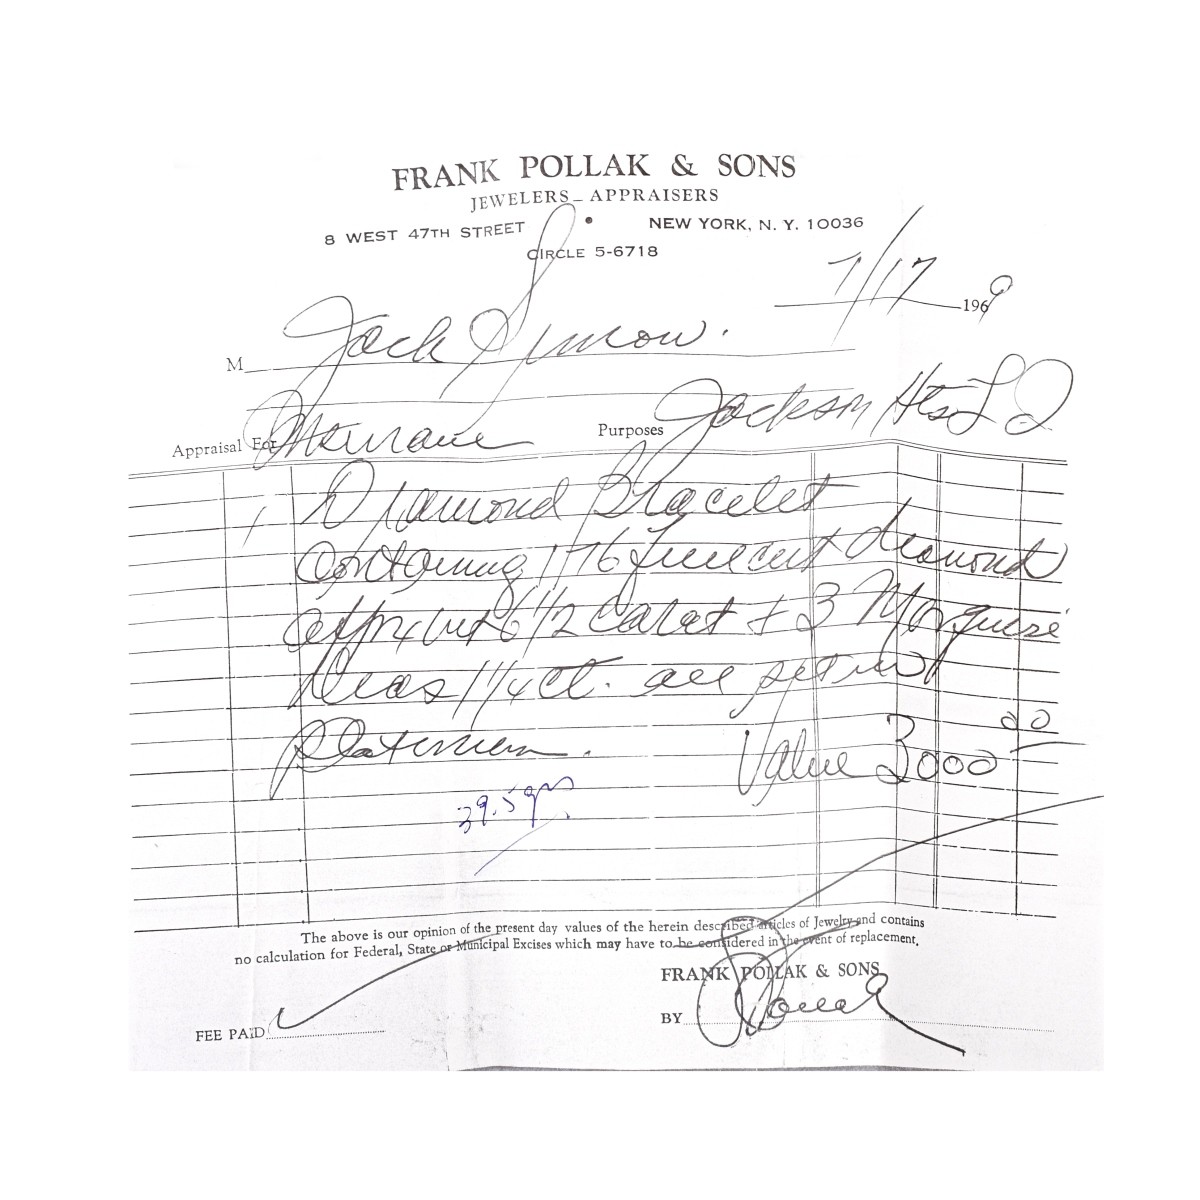 FRANK POLLAK & SONS
JEWELERS - APPRAISERS
8 WEST 47TH STREET • NEW YORK, N. Y. 10036
CIRCLE 5-6718
7/17 1969
M Jack
Jackson Hts L I
Appraisal For Insurance Purposes
1 Diamond Bracelet
Containing 176 full cut diamond
6 1/2 Carat + 3 Marquise
Dias 1 1/4 ct. all set in
platinum. Value 3000 00
39.5 gm
The above is our opinion of the present day values of the herein described articles of Jewelry and contains
no calculation for Federal, State or Municipal Excises which may have to be considered in the event of replacement.
FRANK POLLAK & SONS
FEE PAID BY Pollak